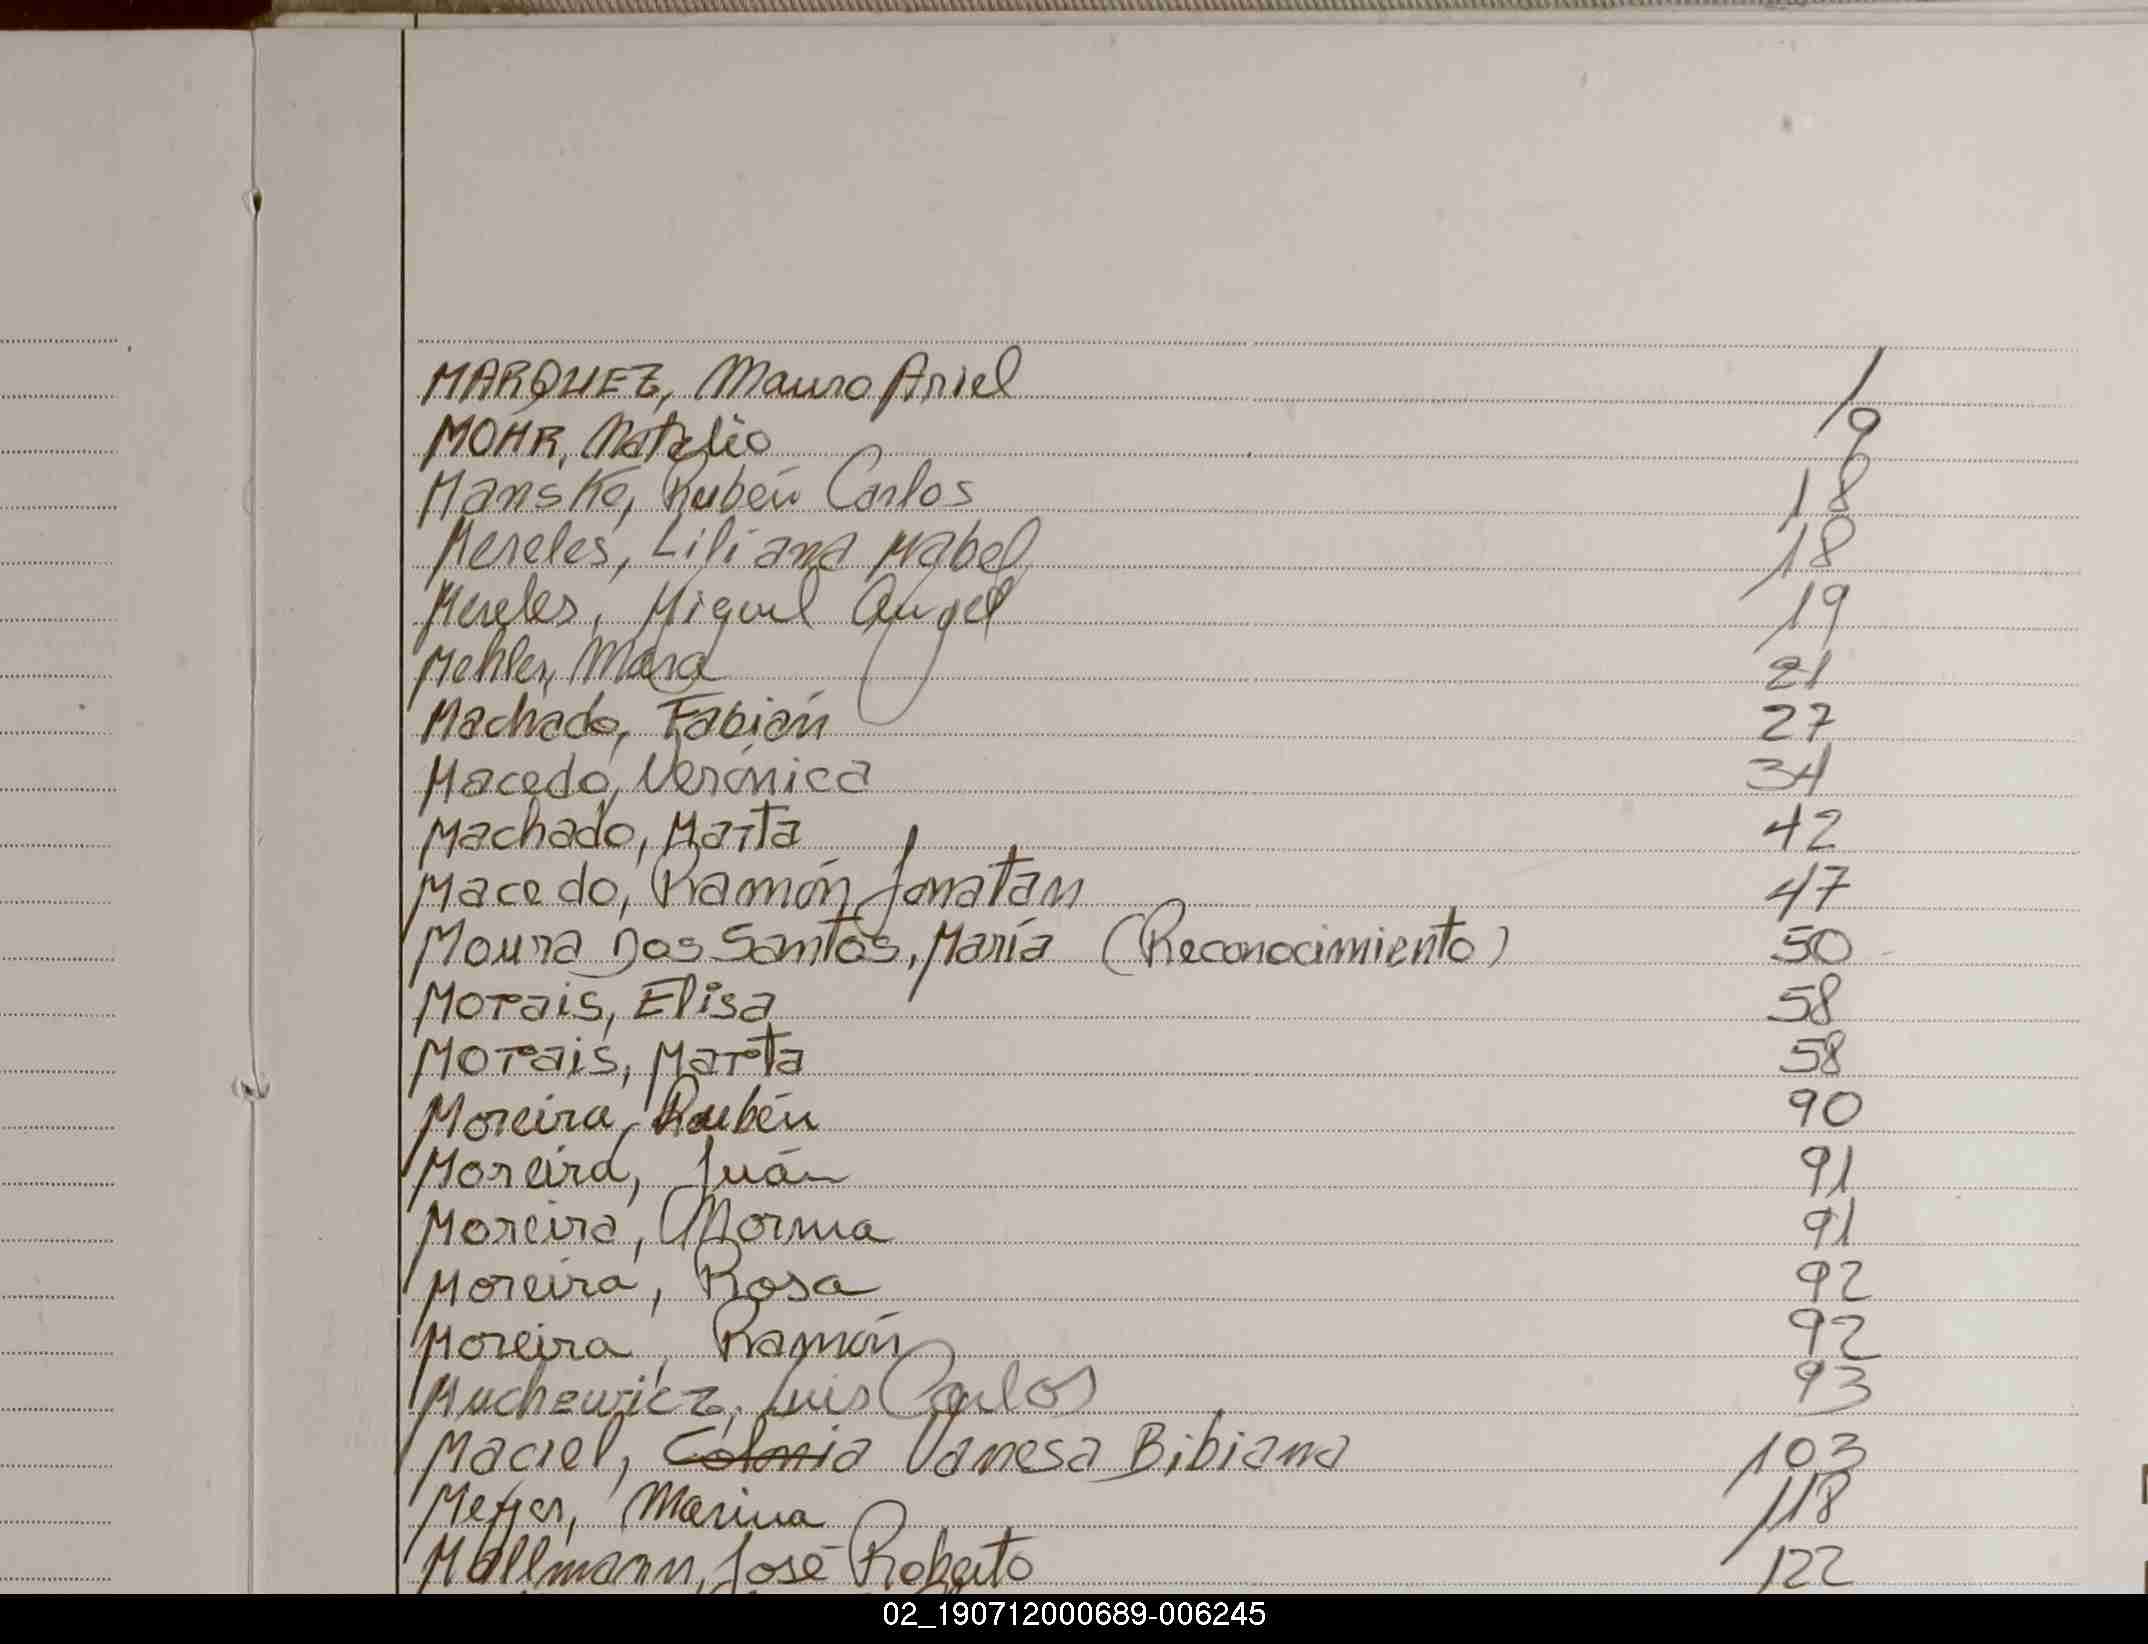 MARQUEZ, Mauro Ariel 1
MOHR, Natalio 9
Manske, Rubén Carlos 18
Mereles, Liliana Mabel 18
Mereles, Miguel Angel 19
Mehler, Mara 21
Machado, Fabián 27
Macedo, Verónica 34
Machado, Marta 42
Macedo, Ramón Jonatan 47
Moura Dos Santos, María (Reconocimiento) 50
Morais, Elisa 58
Morais, Marta 58
Moreira, Rubén 90
Moreira, Juán 91
Moreira, Norma 91
Moreira, Rosa 92
Moreira, Ramón 92
Muchewicz, Luis Carlos 93
Maciel, Vanesa Bibiana 103
Meyer, Marina 118
Mallmann, José Roberto 122
02_190712000689-006245